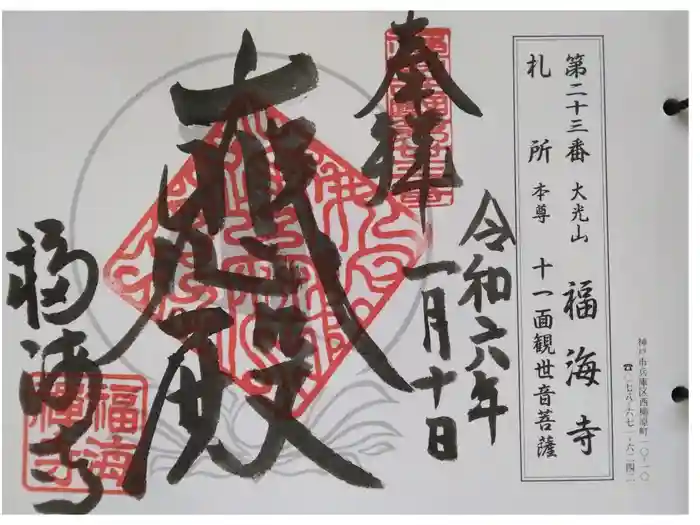 神戸市兵庫区西柳原町一〇-一〇
☎〇七八-六七一-六二四二
第二十三番 大光山 福海寺
札所 本尊 十一面観世音菩薩
奉拝
令和六年
一月十日
福海寺
福海
禅寺